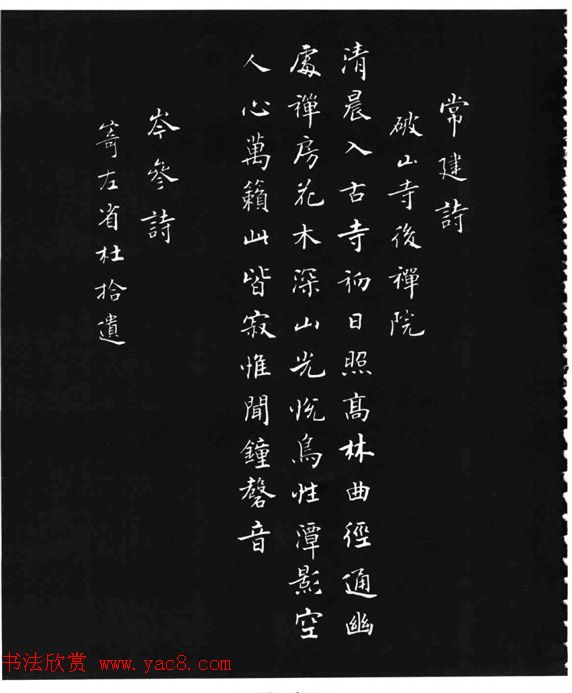 常建詩
破山寺後禪院
清晨入古寺初日照高林曲徑通幽
處禪房花木深山光悅鳥性潭影空
人心萬籟此皆寂惟聞鐘磬音
岑參詩
寄左省杜拾遺
书法欣赏 www.yac8.com